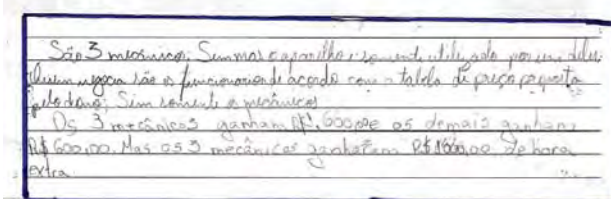 São 3 mecânicos; Sim mas o aparelho é somente utilizado por um deles
Quem negocia são os funcionarios de acordo com a tabela de preço proposta
pelo dono; Sim somente os mecânicos
Os 3 mecânicos ganham R$ 1.600,00 e os demais ganham
R$ 600,00. Mas os 3 mecânicos ganharam de hora
extra